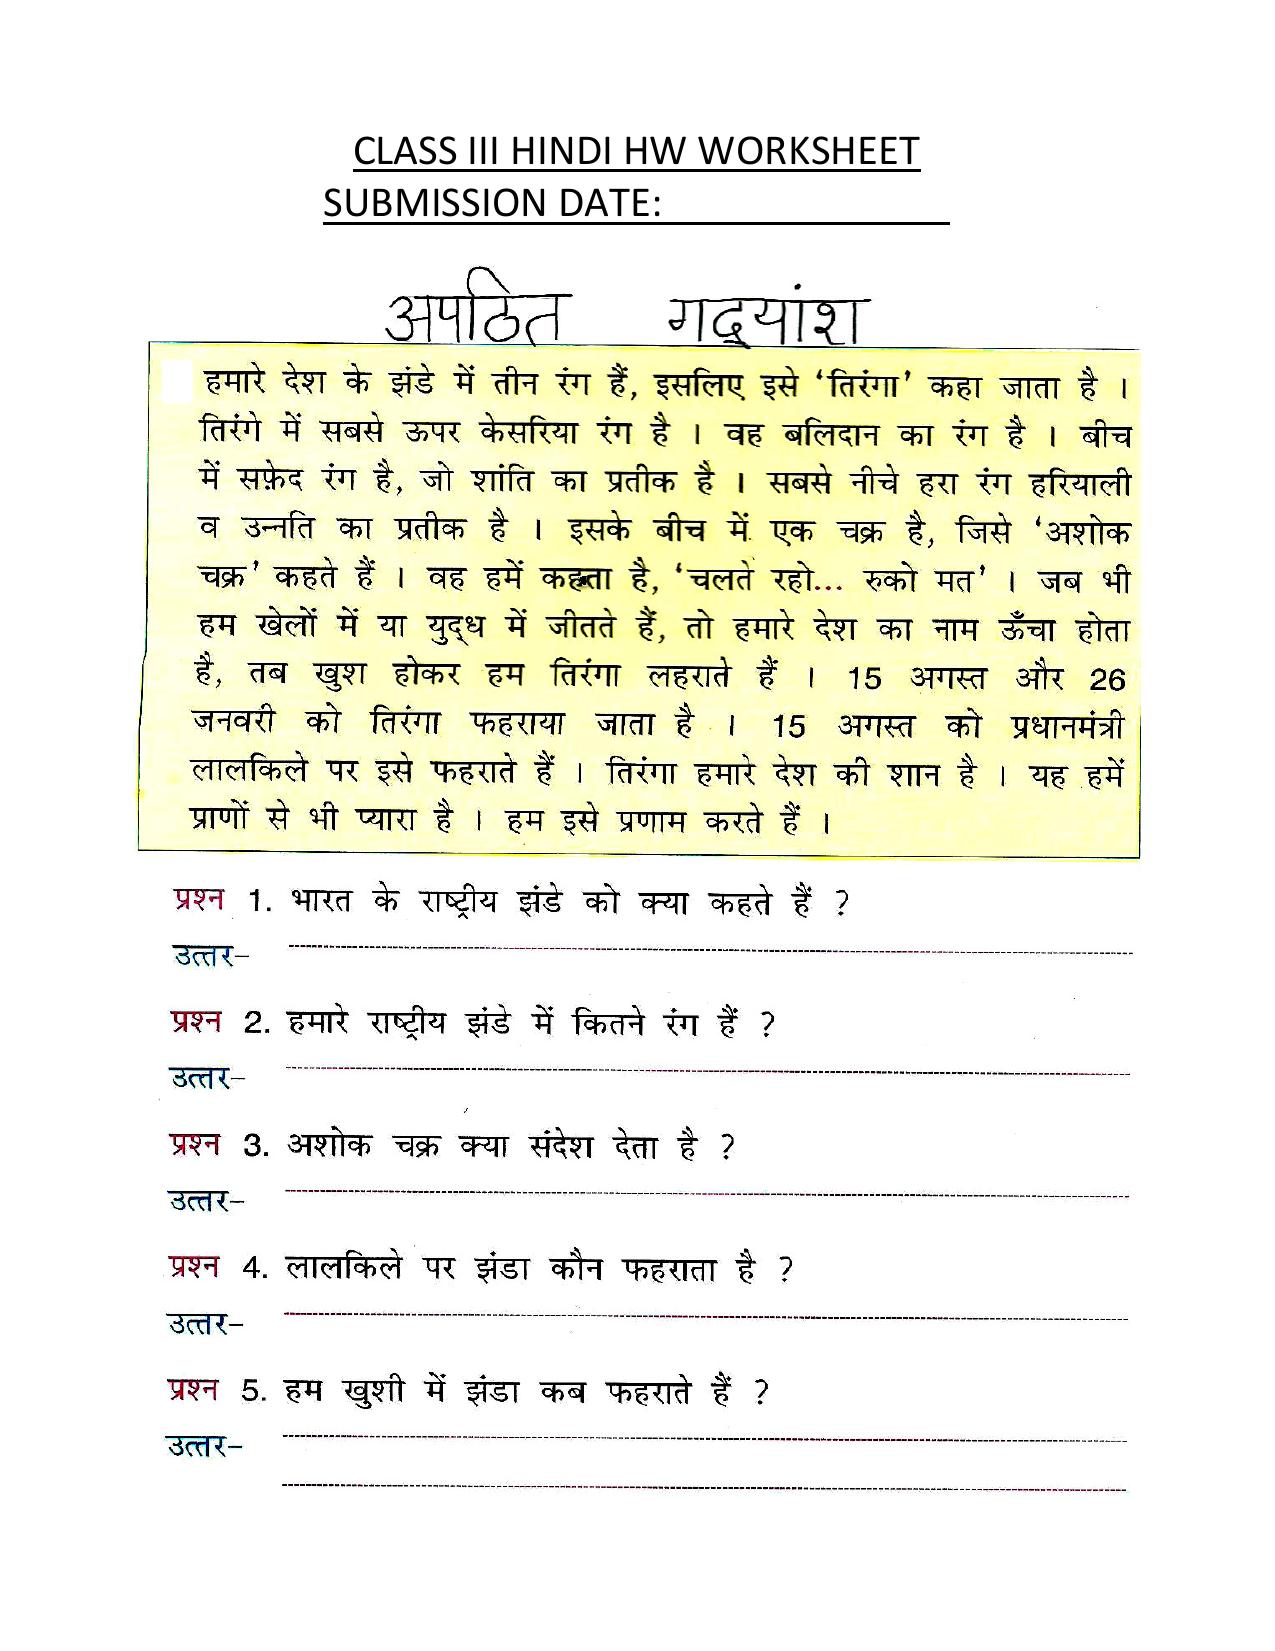 CLASS III HINDI HW WORKSHEET
SUBMISSION DATE:
अपठित गद्यांश
हमारे देश के झंडे में तीन रंग हैं, इसलिए इसे ‘तिरंगा’ कहा जाता है ।
तिरंगे में सबसे ऊपर केसरिया रंग है । वह बलिदान का रंग है । बीच
में सफ़ेद रंग है, जो शांति का प्रतीक है । सबसे नीचे हरा रंग हरियाली
व उन्नति का प्रतीक है । इसके बीच में एक चक्र है, जिसे ‘अशोक
चक्र’ कहते हैं । वह हमें कहता है, ‘चलते रहो... रुको मत’ । जब भी
हम खेलों में या युद्ध में जीतते हैं, तो हमारे देश का नाम ऊँचा होता
है, तब खुश होकर हम तिरंगा लहराते हैं । 15 अगस्त और 26
जनवरी को तिरंगा फहराया जाता है । 15 अगस्त को प्रधानमंत्री
लालकिले पर इसे फहराते हैं । तिरंगा हमारे देश की शान है । यह हमें
प्राणों से भी प्यारा है । हम इसे प्रणाम करते हैं ।
प्रश्न 1. भारत के राष्ट्रीय झंडे को क्या कहते हैं ?
उत्तर–
प्रश्न 2. हमारे राष्ट्रीय झंडे में कितने रंग हैं ?
उत्तर–
प्रश्न 3. अशोक चक्र क्या संदेश देता है ?
उत्तर–
प्रश्न 4. लालकिले पर झंडा कौन फहराता है ?
उत्तर–
प्रश्न 5. हम खुशी में झंडा कब फहराते हैं ?
उत्तर–